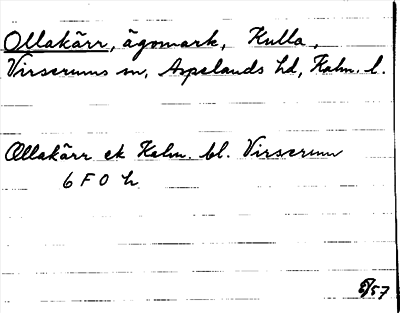 Ollakärr, ägomark, Kulla,
Virserums sn, Aspelands hd, Kalm. l.
Ollakärr ek Kalm. bl. Virserum
6 F 0 h
/57